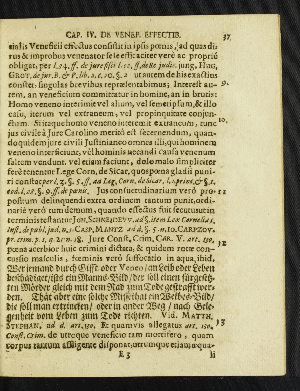 CAP. IV. DE VENEF. EFFECTIB. 37
cialis Veneficii effectus consistit in ipsis poenis, ad quas di-
rus & improbus venenator se se efficaciter veré ac proprió
obligat, per l. 14. ff. de jure fisci l. 12. ff. de Re judic. jung. HUG,
GROT. de jur. B. & P. lib. 2. c. 20. §. 2. ut autem de his exactius
constet, singulas brevibus repræsentabimus; Interest au-
tem, an veneficium committatur in homine, an in brutis:
Homo veneno interimit vel alium, vel semetipsum, & illo
casu, iterum vel extraneum, vel propinquitate conjun-
ctum. Si itaque homo veneno interimit extraneum, tunc
jus civile á Jure Carolino meritò est secernendum, quan-
doquidem jure civili Justinianeo omnes illi, qui hominem
veneno interfecium, vel hominis necandi causâ venenum
saltem vendunt, vel etiam faciunt, dolo malo simpliciter
ferè tenentur Lege Corn. de Sicar. quos poena gladii puni-
ri constat per l. 3. §. 5. ff. ad Leg. Corn. de sicar.
11
positum delinquendi extra ordinem tantum punit, ordi-
nariè verò tum demum, quando effectus fuit secutus
CASP. MANTZ ad d. §. 5. n. 10. CARPZOV.
pr. crim. p. 1. q. 20. n. 18. Jure Const. Crim. CAR. V. art. 130.
12
poena acerbior huic crimini dictata, & quidem ratione con-
cussio masculis, foeminis verò suffocatio in aqua, ibid,
Wer jemand durch Gifft oder Veneno an Leib oder Leben
beschädiget/ ists ein Manns-Bild/ der soll einen fürgeseß-
ten Mörder gleich mit dem Rad zum Tode gestrafft wer-
den. Thät aber eine solche Missethat ein Weibes-Bild/
die soll man ertrencken/ oder in ander Weg/ nach Gele-
genheit vom Leben zum Tode richten. Vid. MATTH.
STEPHAN, ad d. art. 130. Et quamvis allegatus art. 130.
13
Const. Crim. de utroque veneficio tam mortifero, quam
corpus tantum affligente disponat, utrumque etiam æqua-
E 3 li